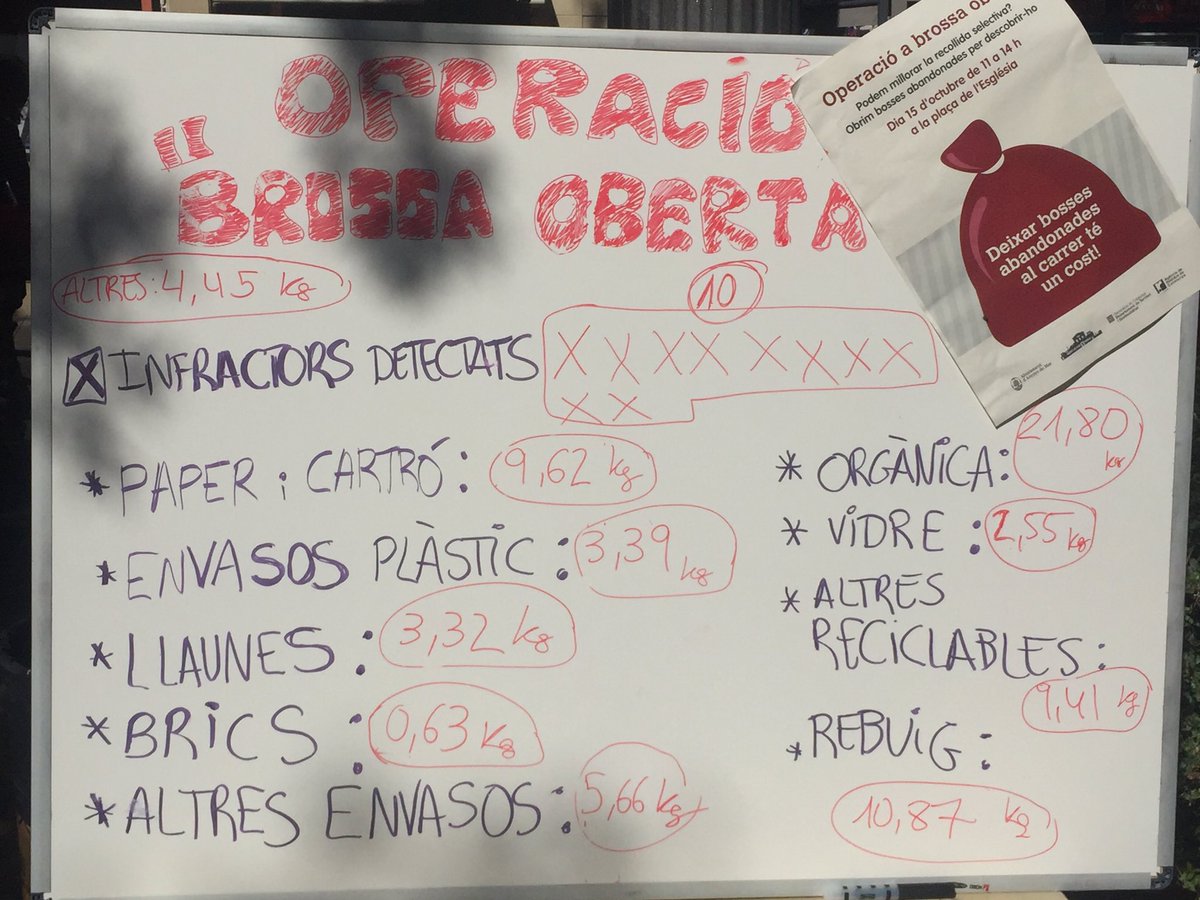 OPERACIÓ
"BROSSA OBERTA
ALTRES: 4,45 kg
10
X INFRACTORS DETECTATS X X X X X X X X
X X
* PAPER i CARTRÓ: 9,62 kg
* ENVASOS PLÀSTIC: 3,39 kg
* LLAUNES: 3,32 kg
* BRICS: 0,63 kg
* ALTRES ENVASOS: 5,66 kg
* ORGÀNICA: 21,80 kg
* VIDRE: 2,55 kg
* ALTRES
RECICLABLES:
9,41 kg
* REBUIG:
10,87 kg
Operació a brossa
Podem millorar la recollida selectiva?
Obrim bosses abandonades per descobrir-ho
Dia 15 d'octubre de 11 a 14 h
a la plaça de l'Església
Deixar bosses
abandonades
al carrer té
un cost!